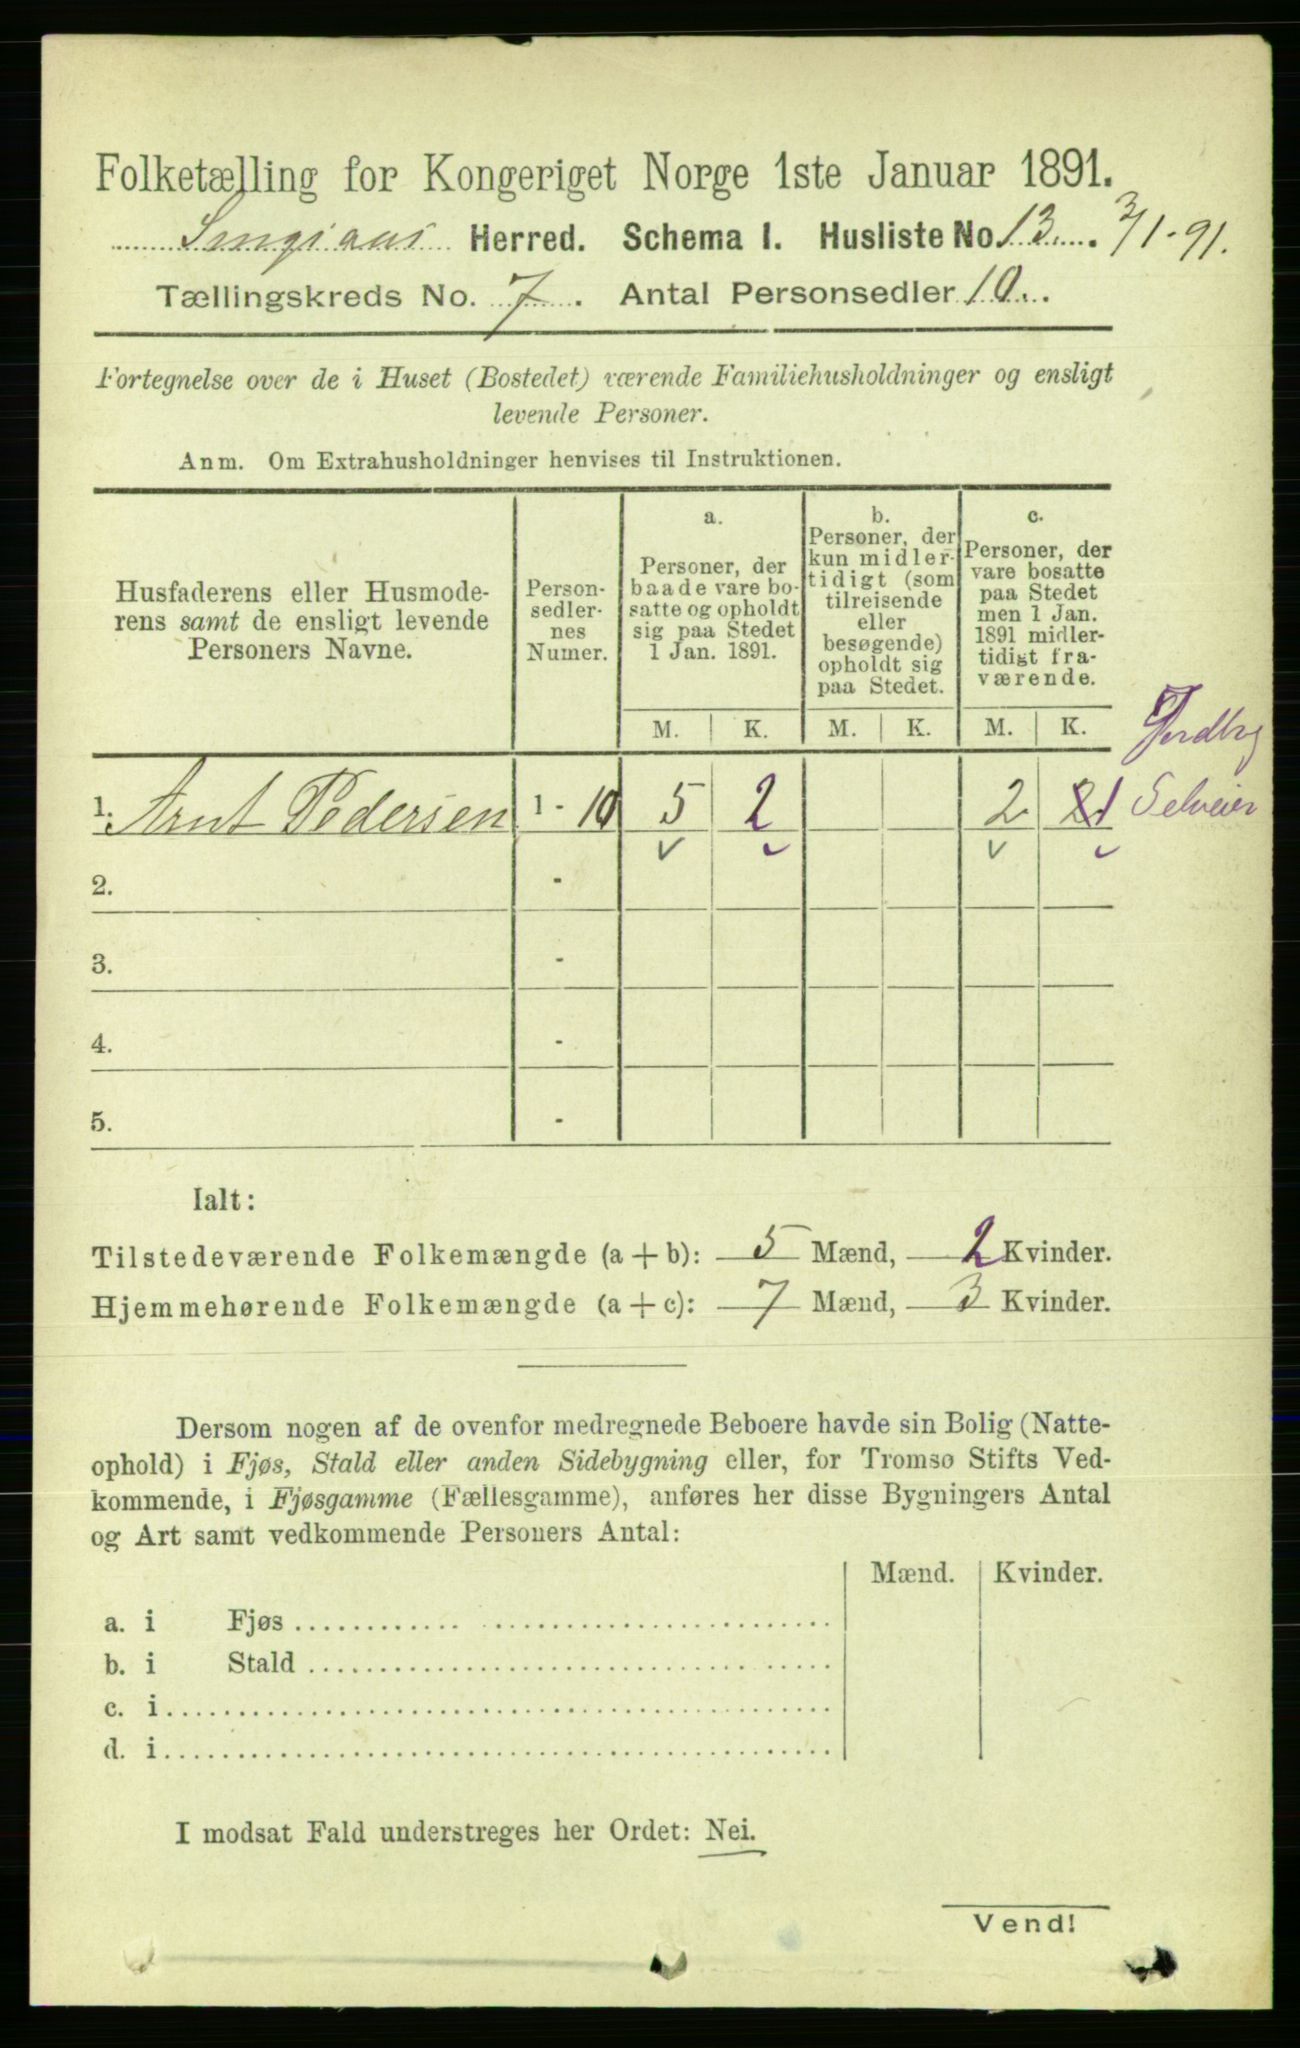 Folketælling for Kongeriget Norge 1ste Januar 1891.
Herred. Schema I. Husliste No. 13. 3/1-91.
Tællingskreds No. 7. Antal Personsedler 10.
Fortegnelse over de i Huset (Bostedet) værende Familiehusholdninger og ensligt
levende Personer.
Anm. Om Extrahusholdninger henvises til Instruktionen.
Husfaderens eller Husmode-
rens samt de ensligt levende
Personers Navne.
Person-
sedler-
nes
Numer.
a.
Personer, der
baade vare bo-
satte og opholdt
sig paa Stedet
1 Jan. 1891.
b.
Personer, der
kun midler-
tidigt (som
tilreisende
eller
besøgende)
opholdt sig
paa Stedet.
c.
Personer, der
vare bosatte
paa Stedet
men 1 Jan.
1891 midler-
tidigt fra-
værende.
M. K. M. K. M. K.
Jordbr
1. Arnt Pedersen 1 - 10 5 2 2 1 Selveier
2. -
3. -
4. -
5. -
Ialt:
Tilstedeværende Folkemængde (a + b): 5 Mænd, 2 Kvinder.
Hjemmehørende Folkemængde (a + c): 7 Mænd, 3 Kvinder.
Dersom nogen af de ovenfor medregnede Beboere havde sin Bolig (Natte-
ophold) i Fjøs, Stald eller anden Sidebygning eller, for Tromsø Stifts Ved-
kommende, i Fjøsgamme (Fællesgamme), anføres her disse Bygningers Antal
og Art samt vedkommende Personers Antal:
Mænd. Kvinder.
a. i Fjøs
b. i Stald
c. i
d. i
I modsat Fald understreges her Ordet: Nei.
Vend!